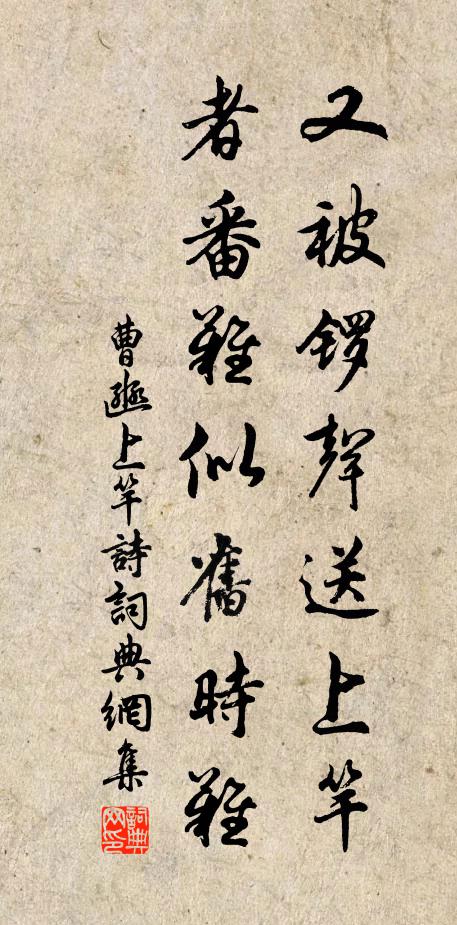 又被锣聲送上竿
者番難似舊時難
曹豳上竿詩詞典網集
詞典網印